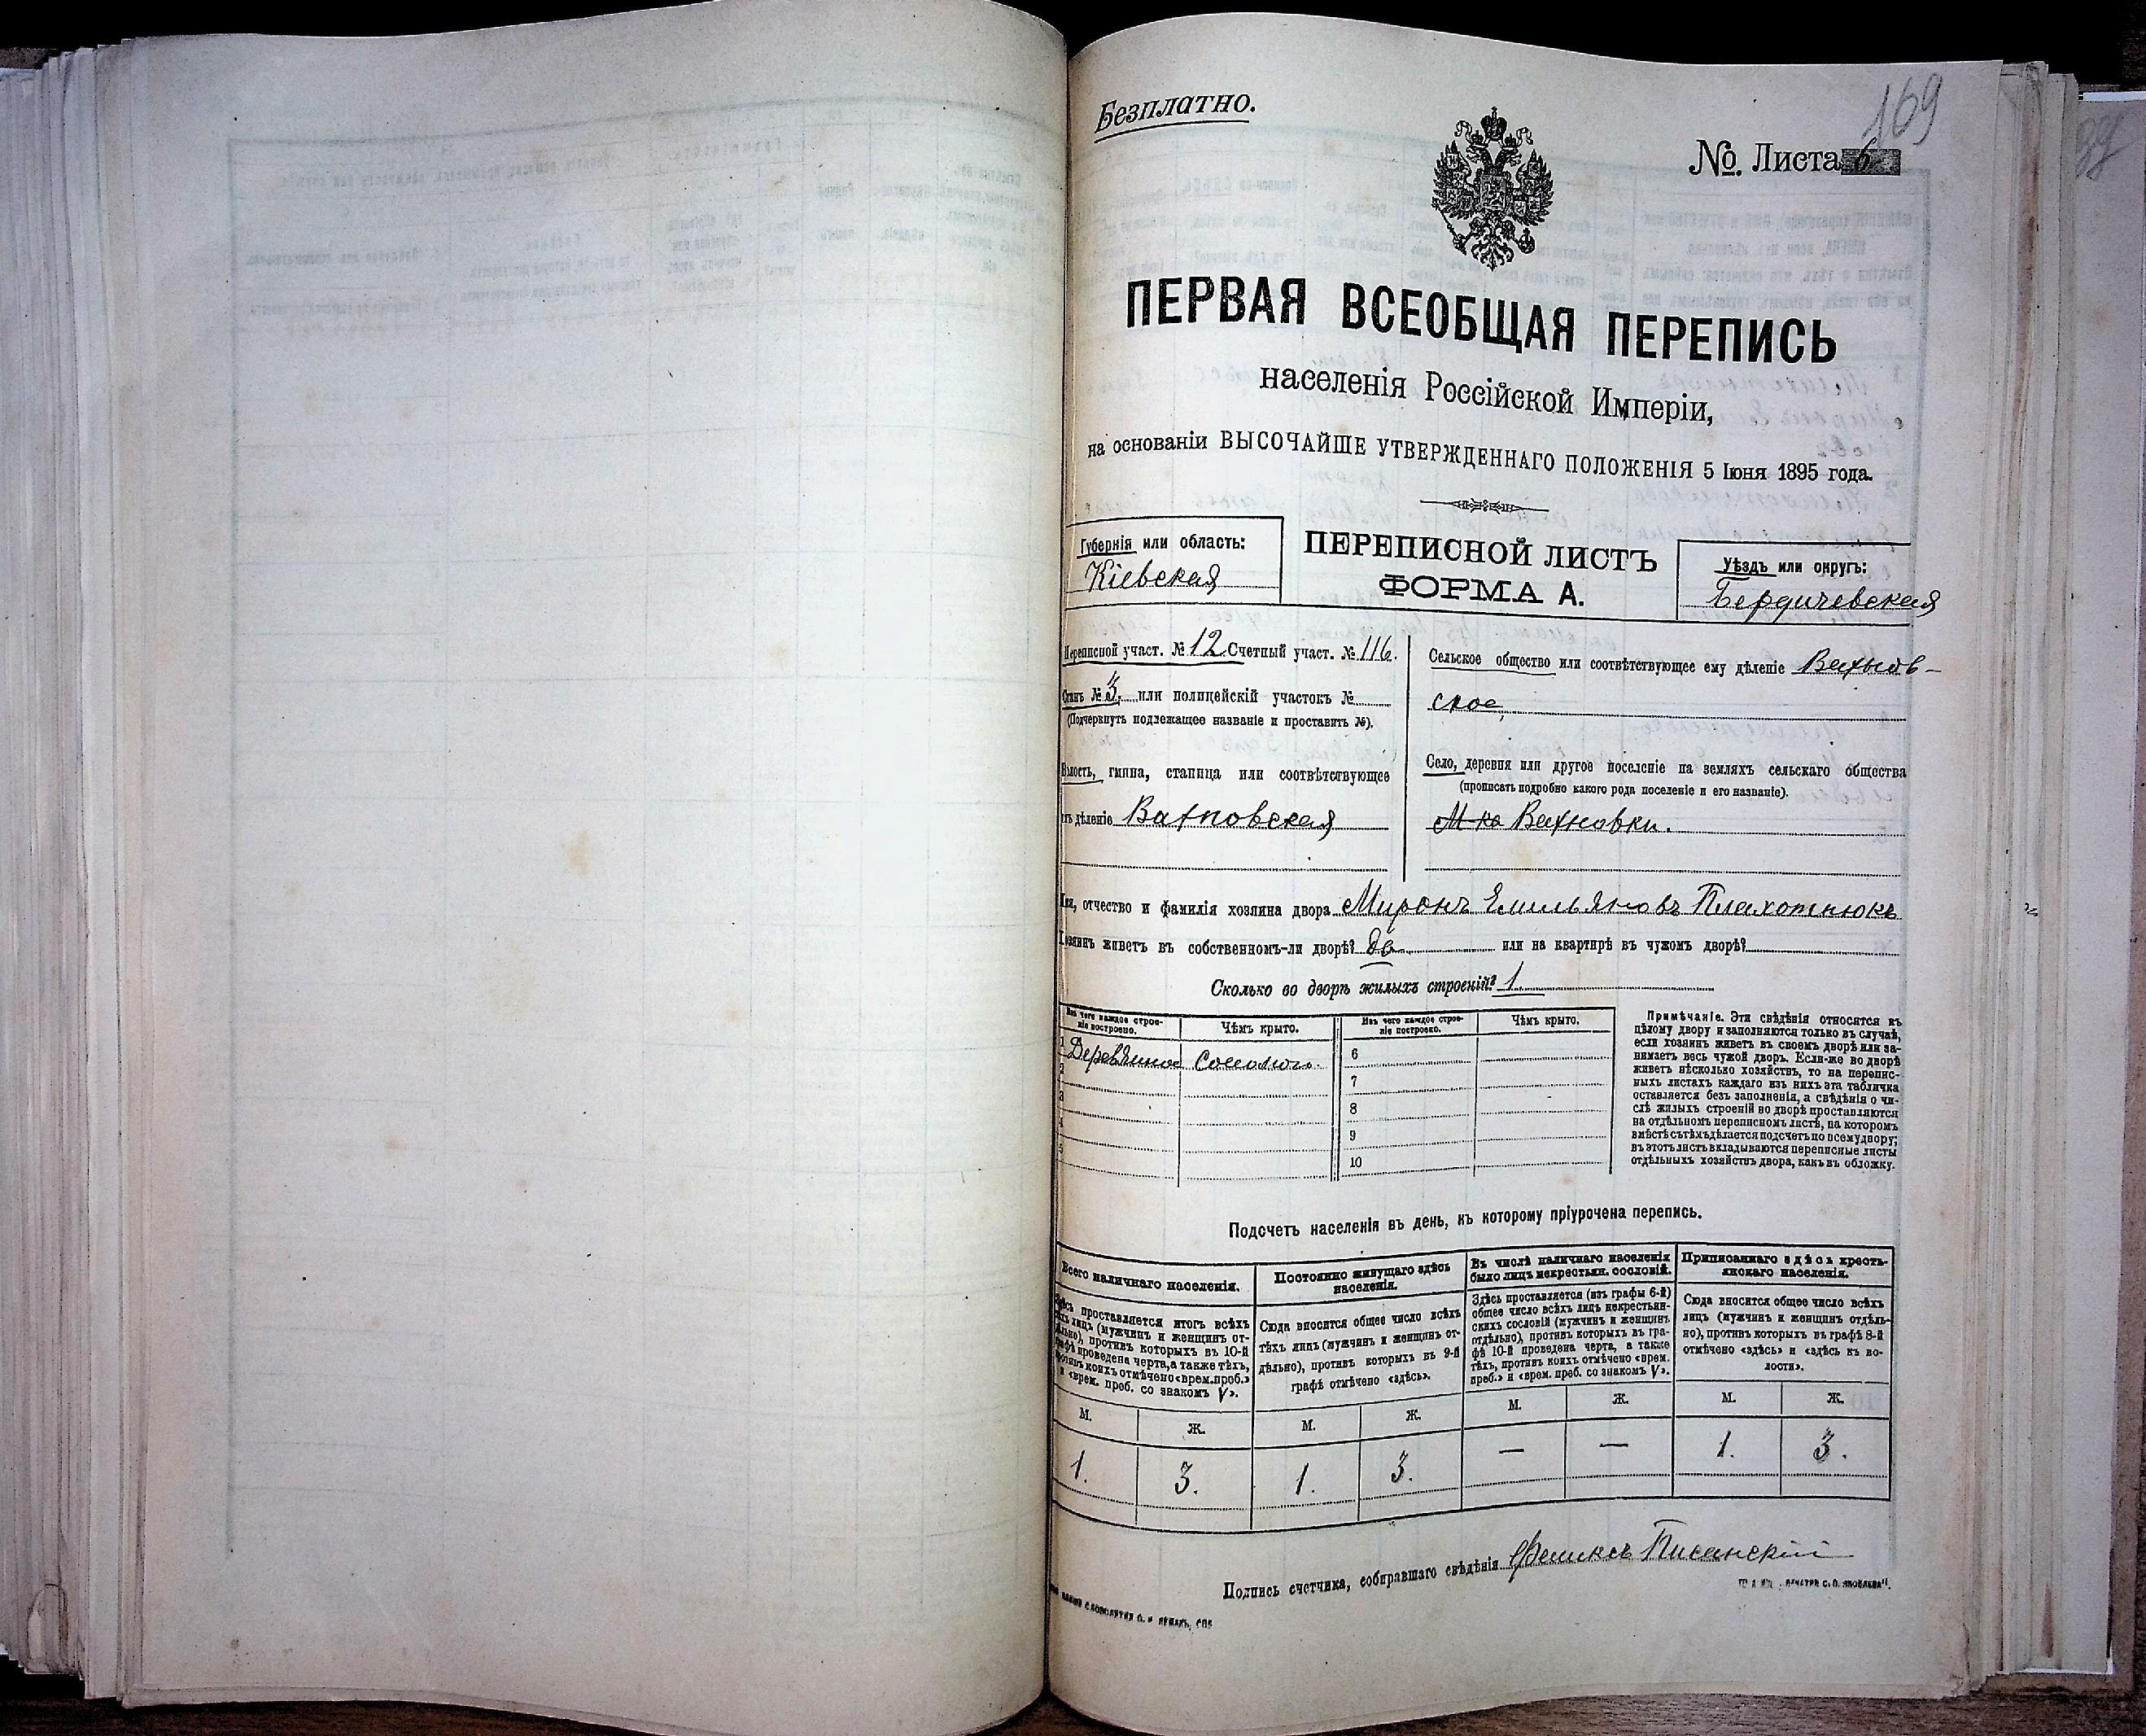 169
Безплатно.
№ Листа 6
ПЕРВАЯ ВСЕОБЩАЯ ПЕРЕПИСЬ
населенія Россійской Имперіи,
на основаніи ВЫСОЧАЙШЕ УТВЕРЖДЕННАГО ПОЛОЖЕНІЯ 5 Іюня 1895 года.
ПЕРЕПИСНОЙ ЛИСТЪ
ФОРМА А.
Губернія или область:
Кіевская
Уѣздъ или округъ:
Бердичевская
Переписной участ. № 12. Счетный участ. № 116.
Станъ № 3, или полицейскій участокъ №
(Подчеркнуть подлежащее названіе и проставить №).
Волость, гмина, станица или соотвѣтствующее
дѣленіе Вахновская
Сельское общество или соотвѣтствующее ему дѣленіе Вахнов-
ское,
Село, деревня или другое поселеніе на земляхъ сельскаго общества
(прописать подробно какого рода поселеніе и его названіе).
М-ко Вахновки.
Имя, отчество и фамилія хозяина двора Миронъ Емильяновъ Плахотнюкъ
Хозяинъ живетъ въ собственномъ-ли дворѣ? да или на квартирѣ въ чужомъ дворѣ?
Сколько во дворѣ жилыхъ строеній? 1
Изъ чего каждое строе-
ніе построено.
Чѣмъ крыто.
Изъ чего каждое строе-
ніе построено.
Чѣмъ крыто.
1 Деревянное
2
3
4
5
6
7
8
9
10
Примѣчаніе. Эти свѣдѣнія относятся къ
цѣлому двору и заполняются только въ случаѣ,
если хозяинъ живетъ въ своемъ дворѣ или за-
нимаетъ весь чужой дворъ. Если-же во дворѣ
живетъ нѣсколько хозяйствъ, то на перепис-
ныхъ листахъ каждаго изъ нихъ эта табличка
оставляется безъ заполненія, а свѣдѣнія о чи-
слѣ жилыхъ строеній во дворѣ проставляются
на отдѣльномъ переписномъ листѣ, на которомъ
вмѣстѣ съ тѣмъ дѣлается подсчетъ по всему двору;
въ этотъ листъ вкладываются переписные листы
отдѣльныхъ хозяйствъ двора, какъ въ обложку.
Подсчетъ населенія въ день, къ которому пріурочена перепись.
Всего наличнаго населенія.
Здѣсь проставляется итогъ всѣхъ
тѣхъ лицъ (мужчинъ и женщинъ от-
дѣльно), противъ которыхъ въ 10-й
графѣ проведена черта, а также тѣхъ,
противъ коихъ отмѣчено «врем. преб.»
и «врем. преб. со знакомъ V».
Постоянно живущаго здѣсь
населенія.
Сюда вносится общее число всѣхъ
тѣхъ лицъ (мужчинъ и женщинъ от-
дѣльно), противъ которыхъ въ 9-й
графѣ отмѣчено «здѣсь».
Въ числѣ наличнаго населенія
было лицъ некрестьян. сословій.
Здѣсь проставляется (изъ графы 6-й)
общее число всѣхъ лицъ некрестьян-
скихъ сословій (мужчинъ и женщинъ
отдѣльно), противъ которыхъ въ гра-
фѣ 10-й проведена черта, а также
тѣхъ, противъ коихъ отмѣчено «врем.
преб.» и «врем. преб. со знакомъ V».
Приписаннаго здѣсь кресть-
янскаго населенія.
Сюда вносится общее число всѣхъ
лицъ (мужчинъ и женщинъ отдѣль-
но), противъ которыхъ въ графѣ 8-й
отмѣчено «здѣсь» и «здѣсь въ во-
лости».
М. Ж. М. Ж. М. Ж. М. Ж.
1. 3. 1. 3. — — 1. 3.
Подпись счетчика, собиравшаго свѣдѣнія Феликсъ Писанскій